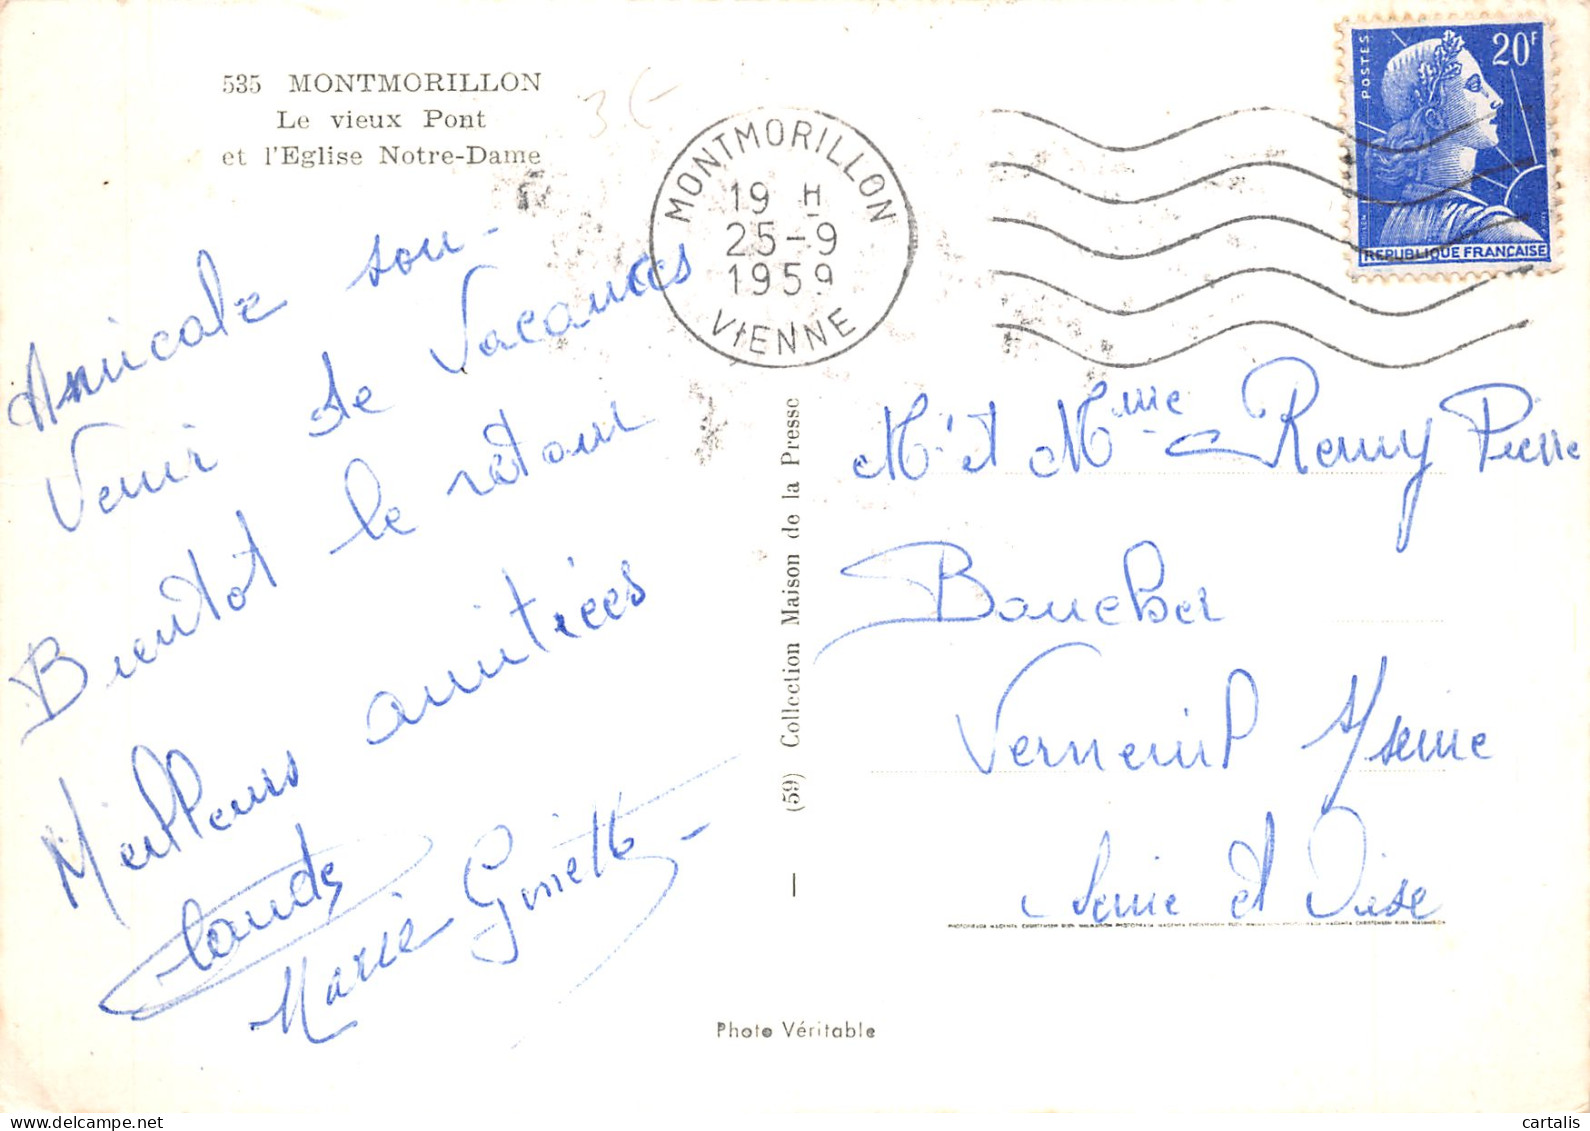 535 MONTMORILLON
Le vieux Pont
et l'Eglise Notre-Dame
3€
MONTMORILLON
19 H
25-9
1959
VIENNE
POSTES
20F
REPUBLIQUE FRANÇAISE
Amicale sou-
venir de Vacances
Bientôt le retour
Meilleurs amitiées
Claude
Marie Ginette
(59) Collection Maison de la Presse
Mr et Mme Remy Pierre
Boucher
Verneuil s/seine
Seine et Oise
Photo Véritable